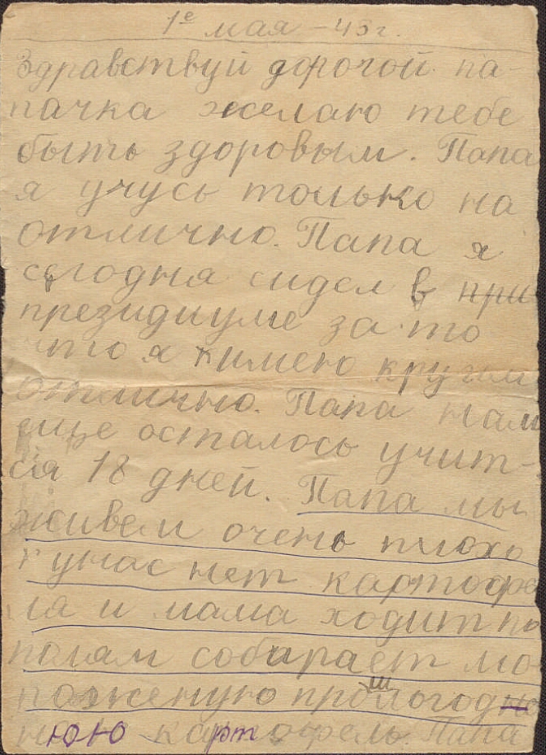 1е мая – 43 г.
Здравствуй дорогой па-
пачка желаю тебе
быть здоровым. Папа
я учусь только на
отлично. Папа я
сегодня сидел в при
президиуме за то
что я имею кругом
отлично. Папа нам
еще осталось учит-
ся 18 дней. Папа мы
живем очень плохо
у нас нет картофе
ля и мама ходит по
полям собирает мо
роженую прошлогодню
нюю картофель. Папа